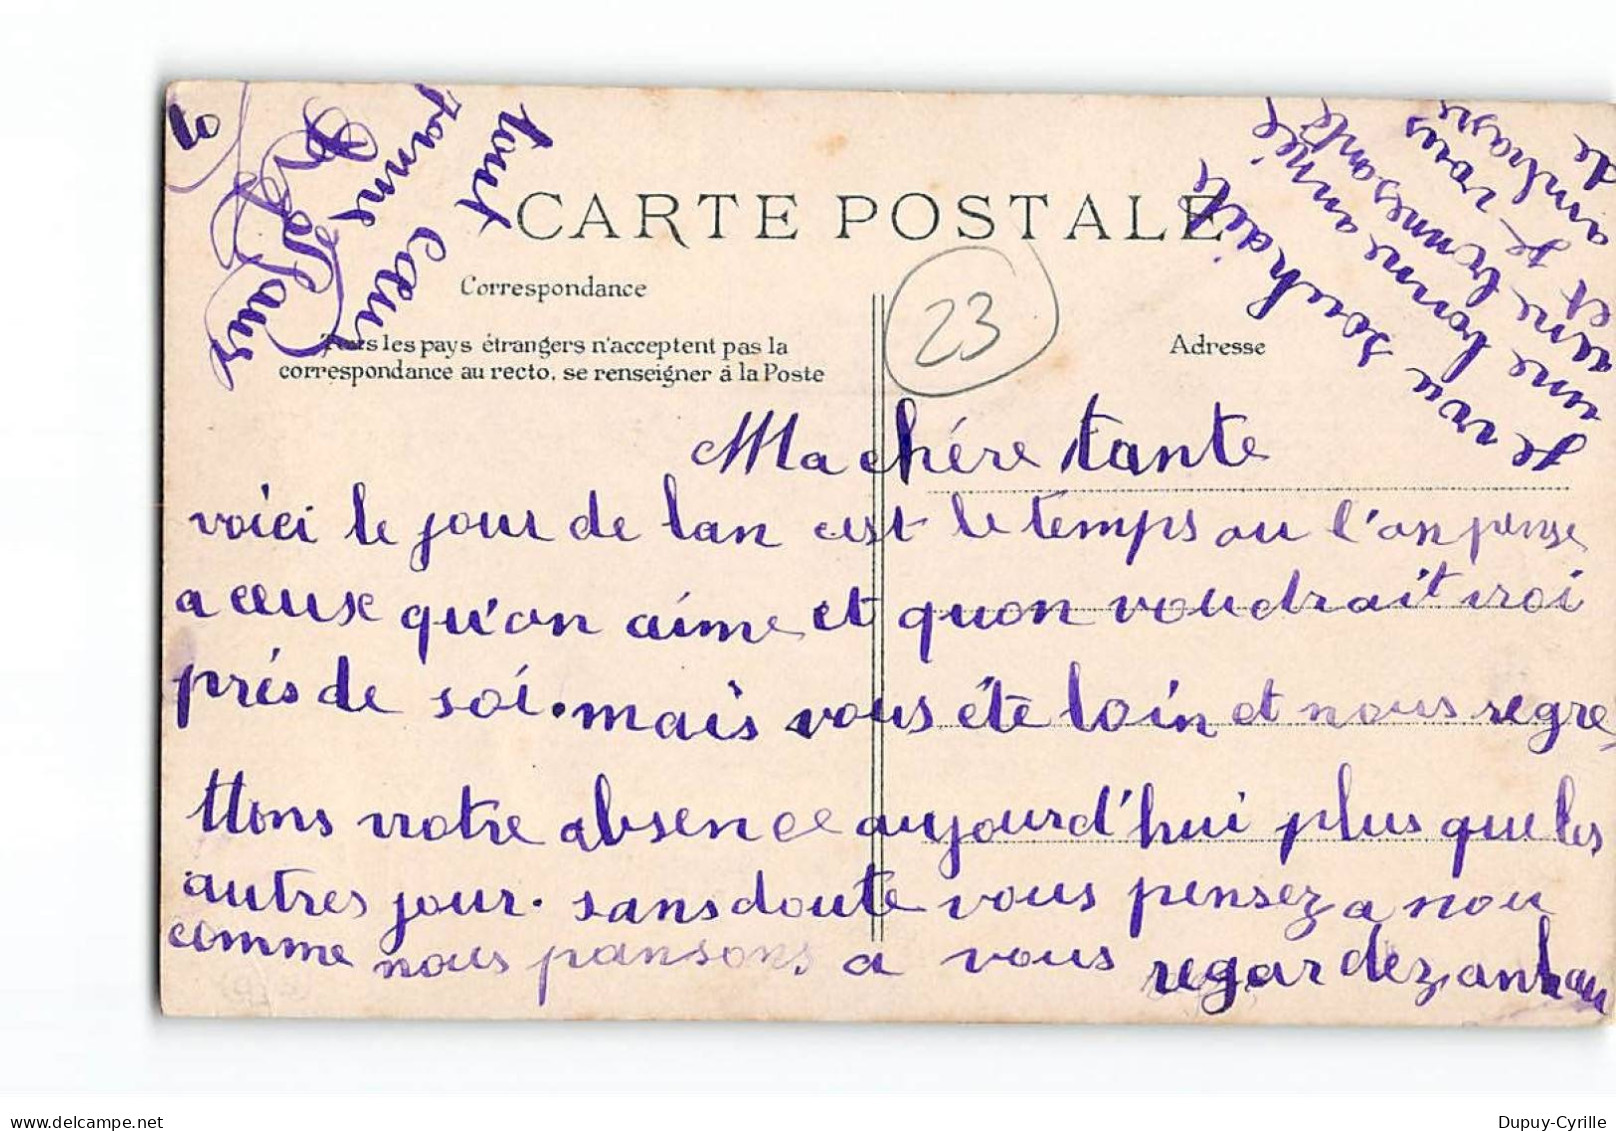 CARTE POSTALE
Correspondance
Tous les pays étrangers n'acceptent pas la
correspondance au recto, se renseigner à la Poste
23
Adresse
Ma chére tante
voici le jour de lan cest le temps ou l'on pense
a ceux qu'on aime et quon voudrait voi
prés de soi. mais vous éte loin et nous regre
ttons votre absence aujourd'hui plus que les
autres jour. sans doute vous pensez a nou
comme nous pansons a vous regardez an hau
Je vou souhaite
une bonne année
une bonne santé
et Je vous
anbrasse
de
tout
cœur